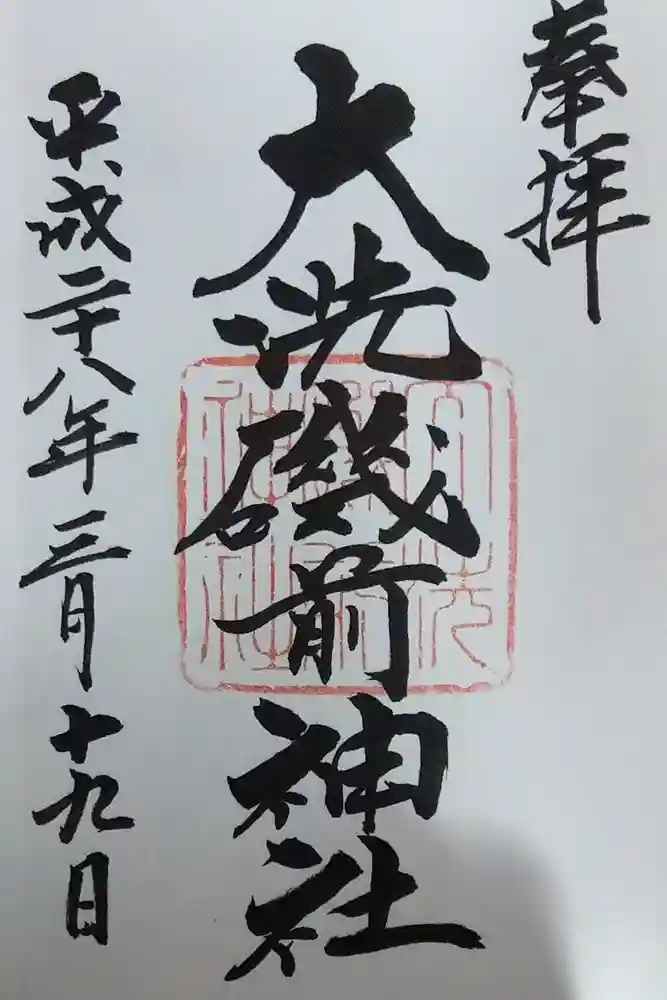 奉拝
大洗磯前神社
平成二十八年三月十九日